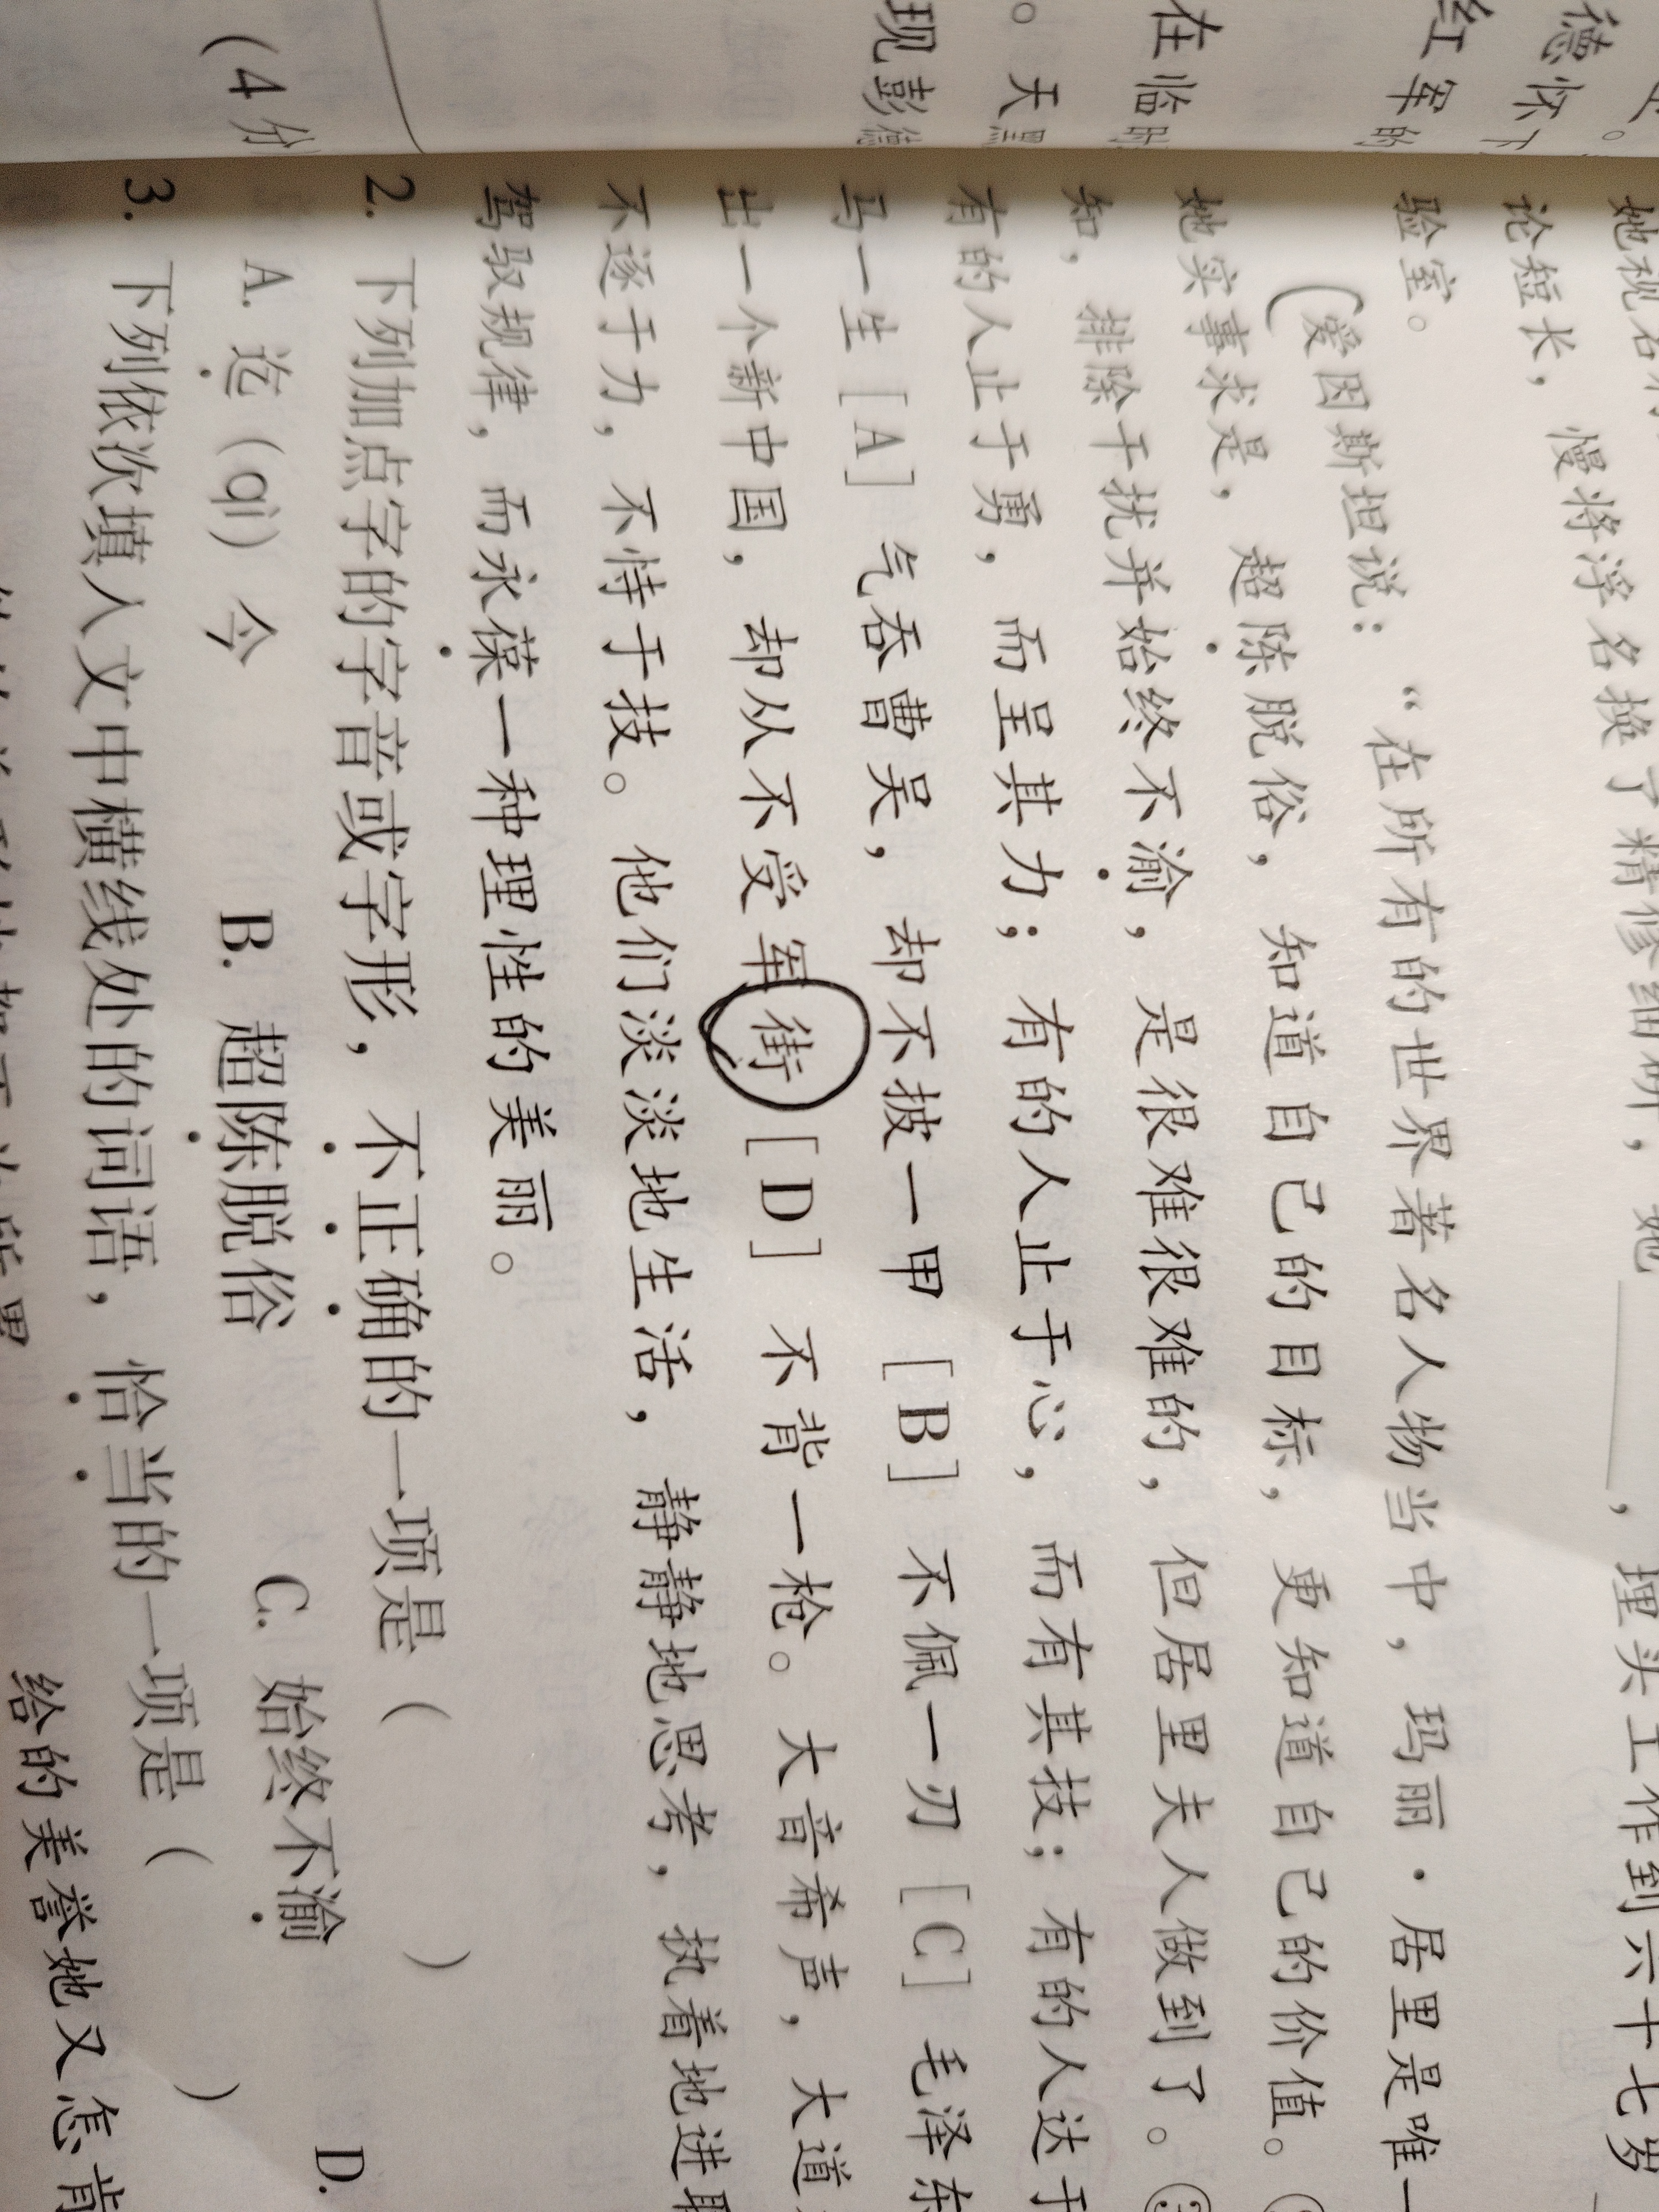 德怀下
红军的
在临时
。天黑
现彭德
（4分
论短长，慢将浮名换了精修细研，她____，埋头工作到六十七岁
验室。
（爱因斯坦说：“在所有的世界著名人物当中，玛丽·居里是唯一
她实事求是，超陈脱俗，知道自己的目标，更知道自己的价值。
知，排除干扰并始终不渝，是很难很难的，但居里夫人做到了。③
有的人止于勇，而呈其力；有的人止于心，而有其技；有的人达于
马一生［A］气吞曹吴，却不披一甲［B］不佩一刃［C］毛泽东
出一个新中国，却从不受军街［D］不背一枪。大音希声，大道
不逐于力，不恃于技。他们淡淡地生活，静静地思考，执着地进取
驾驭规律，而永葆一种理性的美丽。
2. 下列加点字的字音或字形，不正确的一项是（ ）
A. 迄（qì）今 B. 超陈脱俗 C. 始终不渝 D.
3. 下列依次填入文中横线处的词语，恰当的一项是（ ）
给的美誉她又怎肯